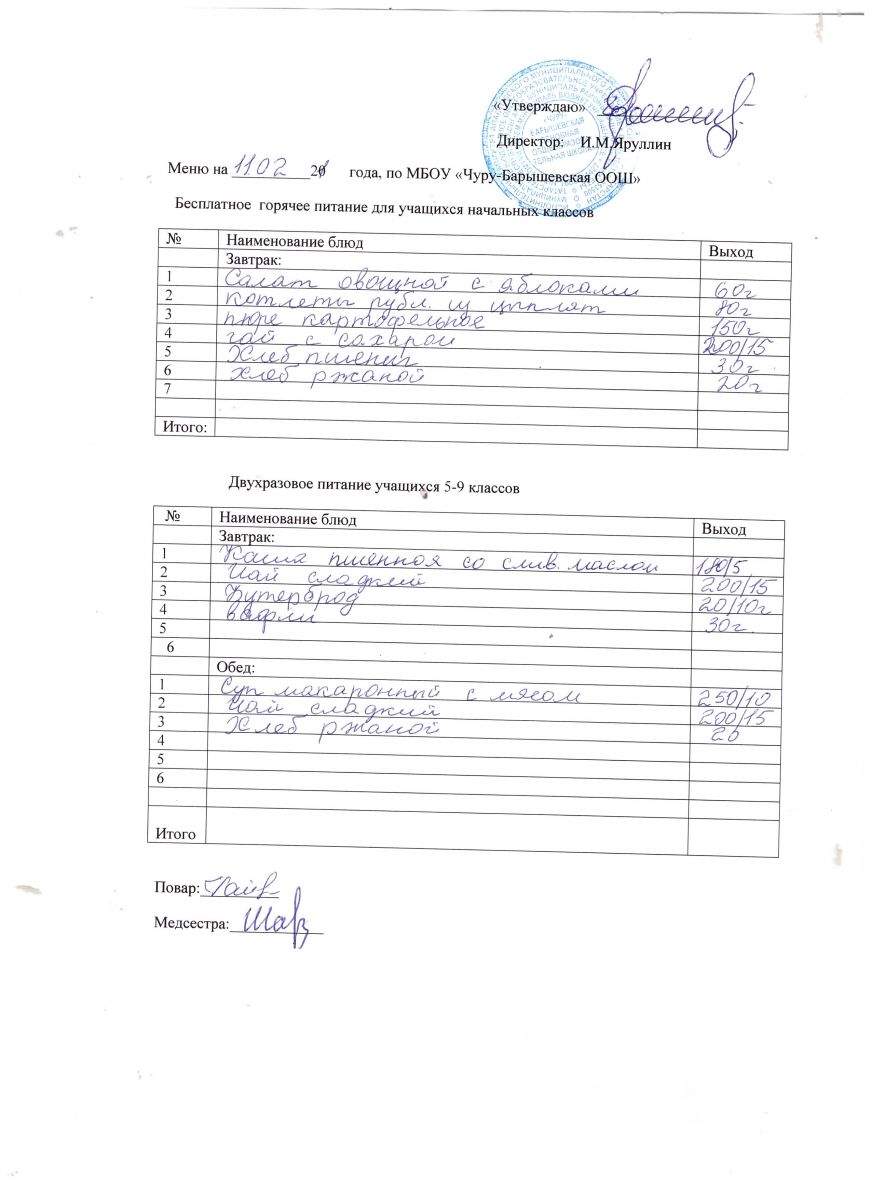 «Утверждаю»
Директор: И.М.Яруллин
Меню на 1102 2021 года, по МБОУ «Чуру-Барышевская ООШ»
Бесплатное горячее питание для учащихся начальных классов
№ Наименование блюд Выход
Завтрак:
1 Салат овощной с яблоками 60г
2 котлеты рубл. из цыплят 80г
3 пюре картофельное 150г
4 чай с сахаром 200/15
5 Хлеб пшенич 30г
6 хлеб ржаной 20г
7
Итого:
Двухразовое питание учащихся 5-9 классов
№ Наименование блюд Выход
Завтрак:
1 Каша пшенная со слив. маслом 180/5
2 Чай сладкий 200/15
3 Бутерброд 20/10г
4 вафли 30г.
5
6
Обед:
1 Суп макаронный с мясом 250/10
2 Чай сладкий 200/15
3 Хлеб ржаной 20
4
5
6
Итого
Повар:
Медсестра: